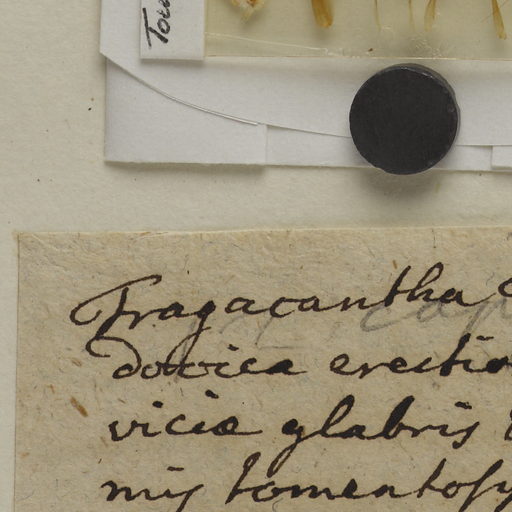 Tou
Tragacantha
dovica erectio
viciæ glabris
mis tomentosis